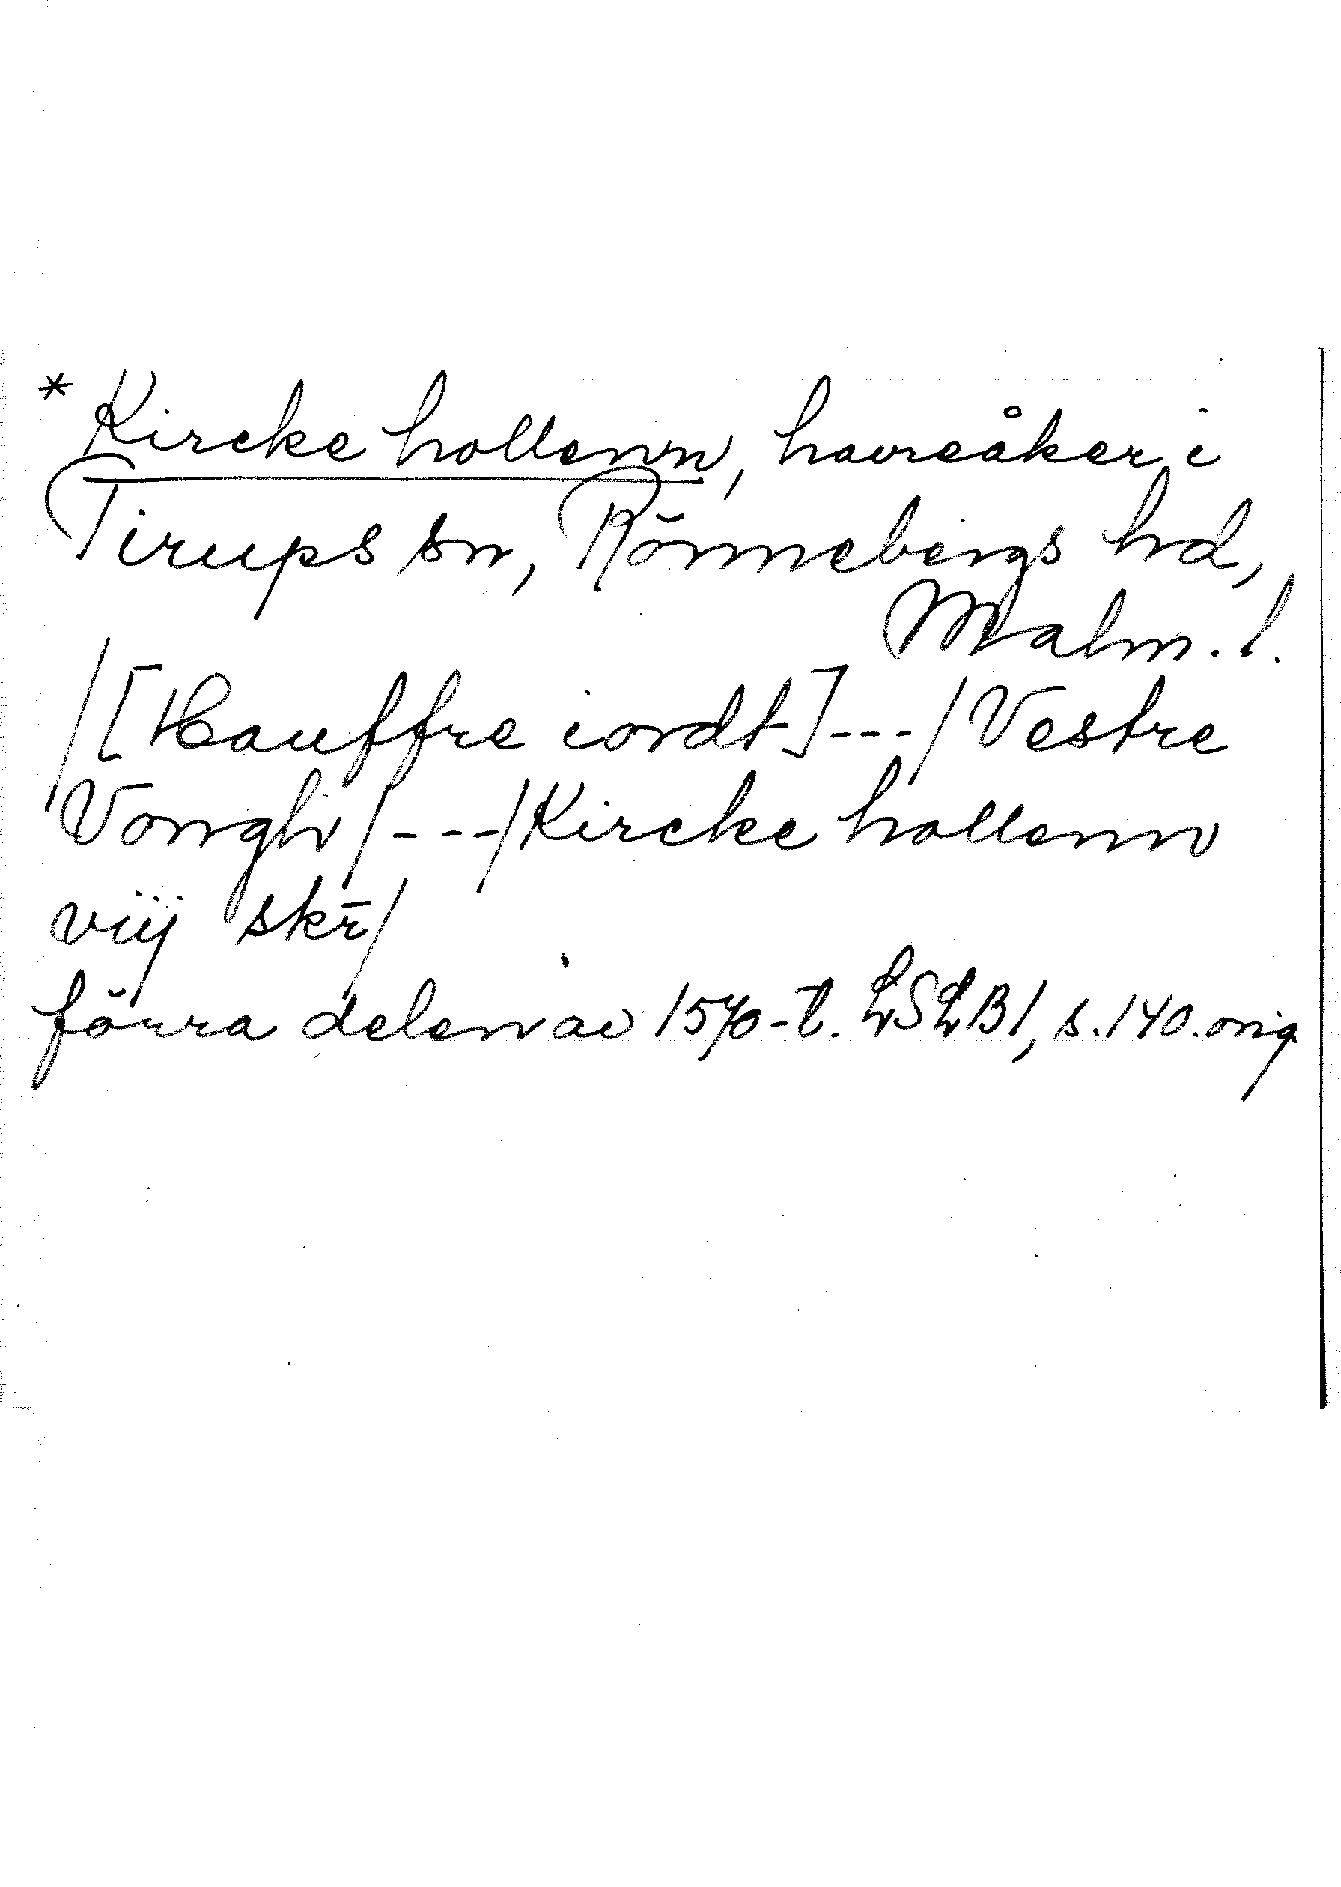 * Kircke hollenn, havreåker i
Tirups sn, Rönnebergs hd,
Malm. l.
/[Hauffre iordt]---/Vestre
Vongh/---/Kircke hollenn
viij skr̄/
förra delen av 1570-t. LSLB1, s.140.orig